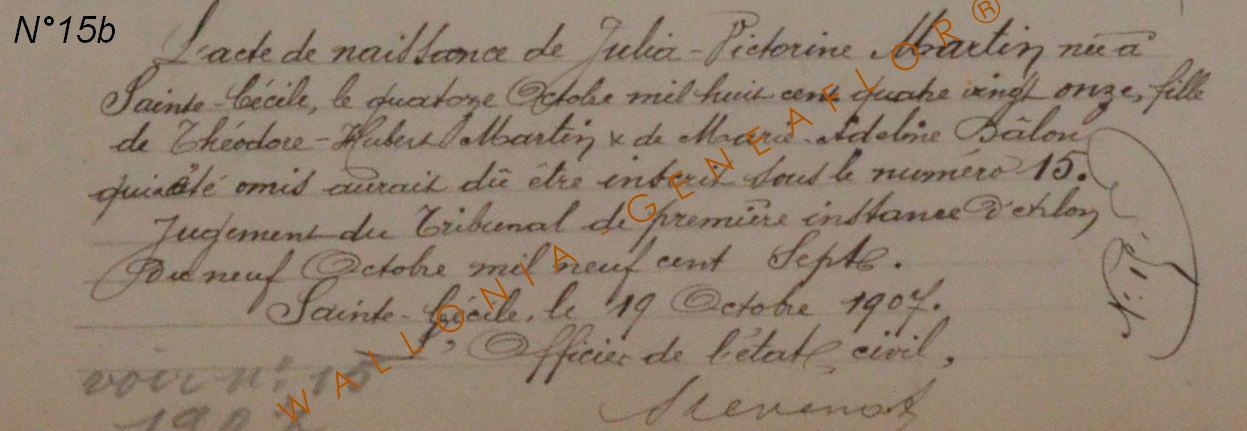 N°15b
L'acte de naissance de Julia-Victorine Martin née à
Sainte-Cécile, le quatorze Octobre mil huit cent quatre vingt onze, fille
de Théodore-Hubert Martin & de Marie-Adeline Bâlon
qui a été omis aurait dû être inscrit sous le numéro 15.
Jugement du Tribunal de première instance d'Arlon
Du neuf Octobre mil neuf cent Sept.
Sainte-Cécile, le 19 Octobre 1907.
L'Officier de l'état civil,
voir n° 15
N° 15
WALLONIA GENEAFLOR®